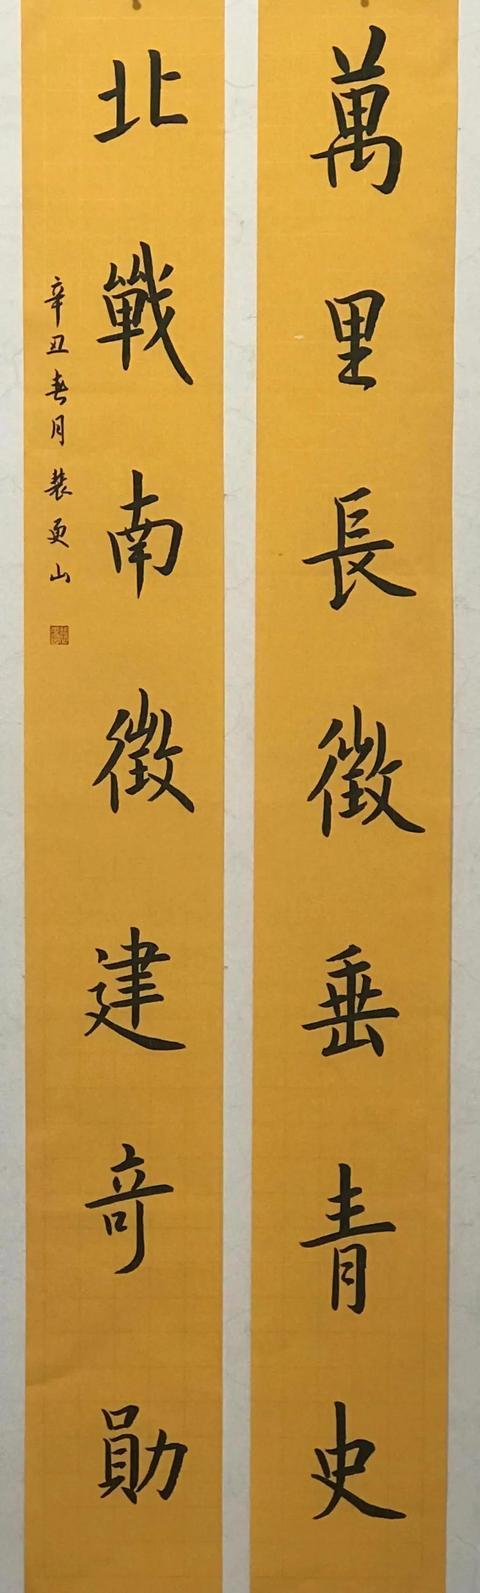 萬里長徵垂青史
北戰南徵建奇勛
辛丑春月裴更山